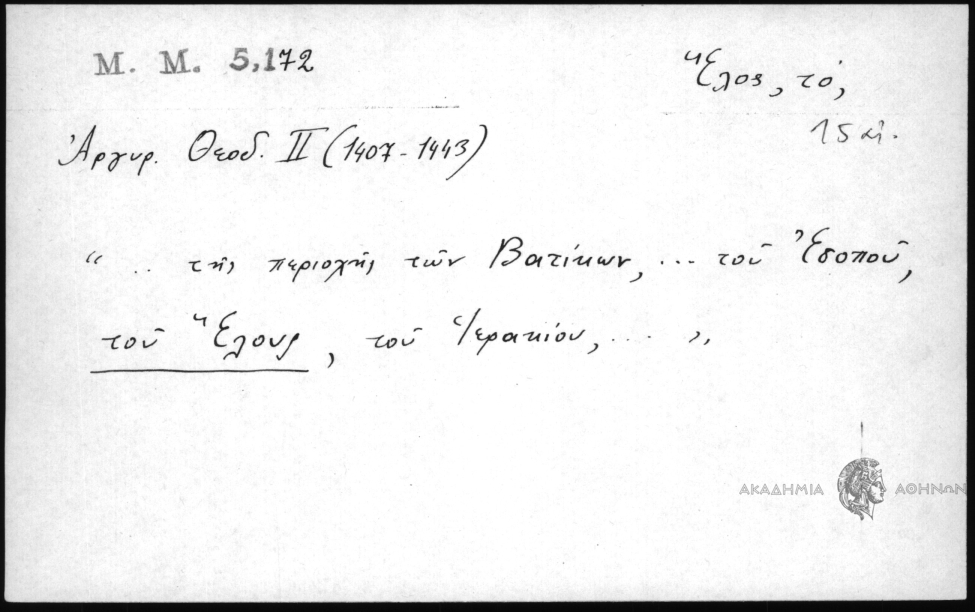 Μ. Μ. 5,172
Ἕλος, τό,
15 αἰ.
Ἀργυρ. Θεοδ. ΙΙ (1407-1443)
“ .. τῆς περιοχῆς τῶν Βατίκων, ... τοῦ Ἐσοποῦ,
τοῦ Ἕλους, τοῦ Ἱερακίου, ... ”,
ΑΚΑΔΗΜΙΑ ΑΘΗΝΩΝ